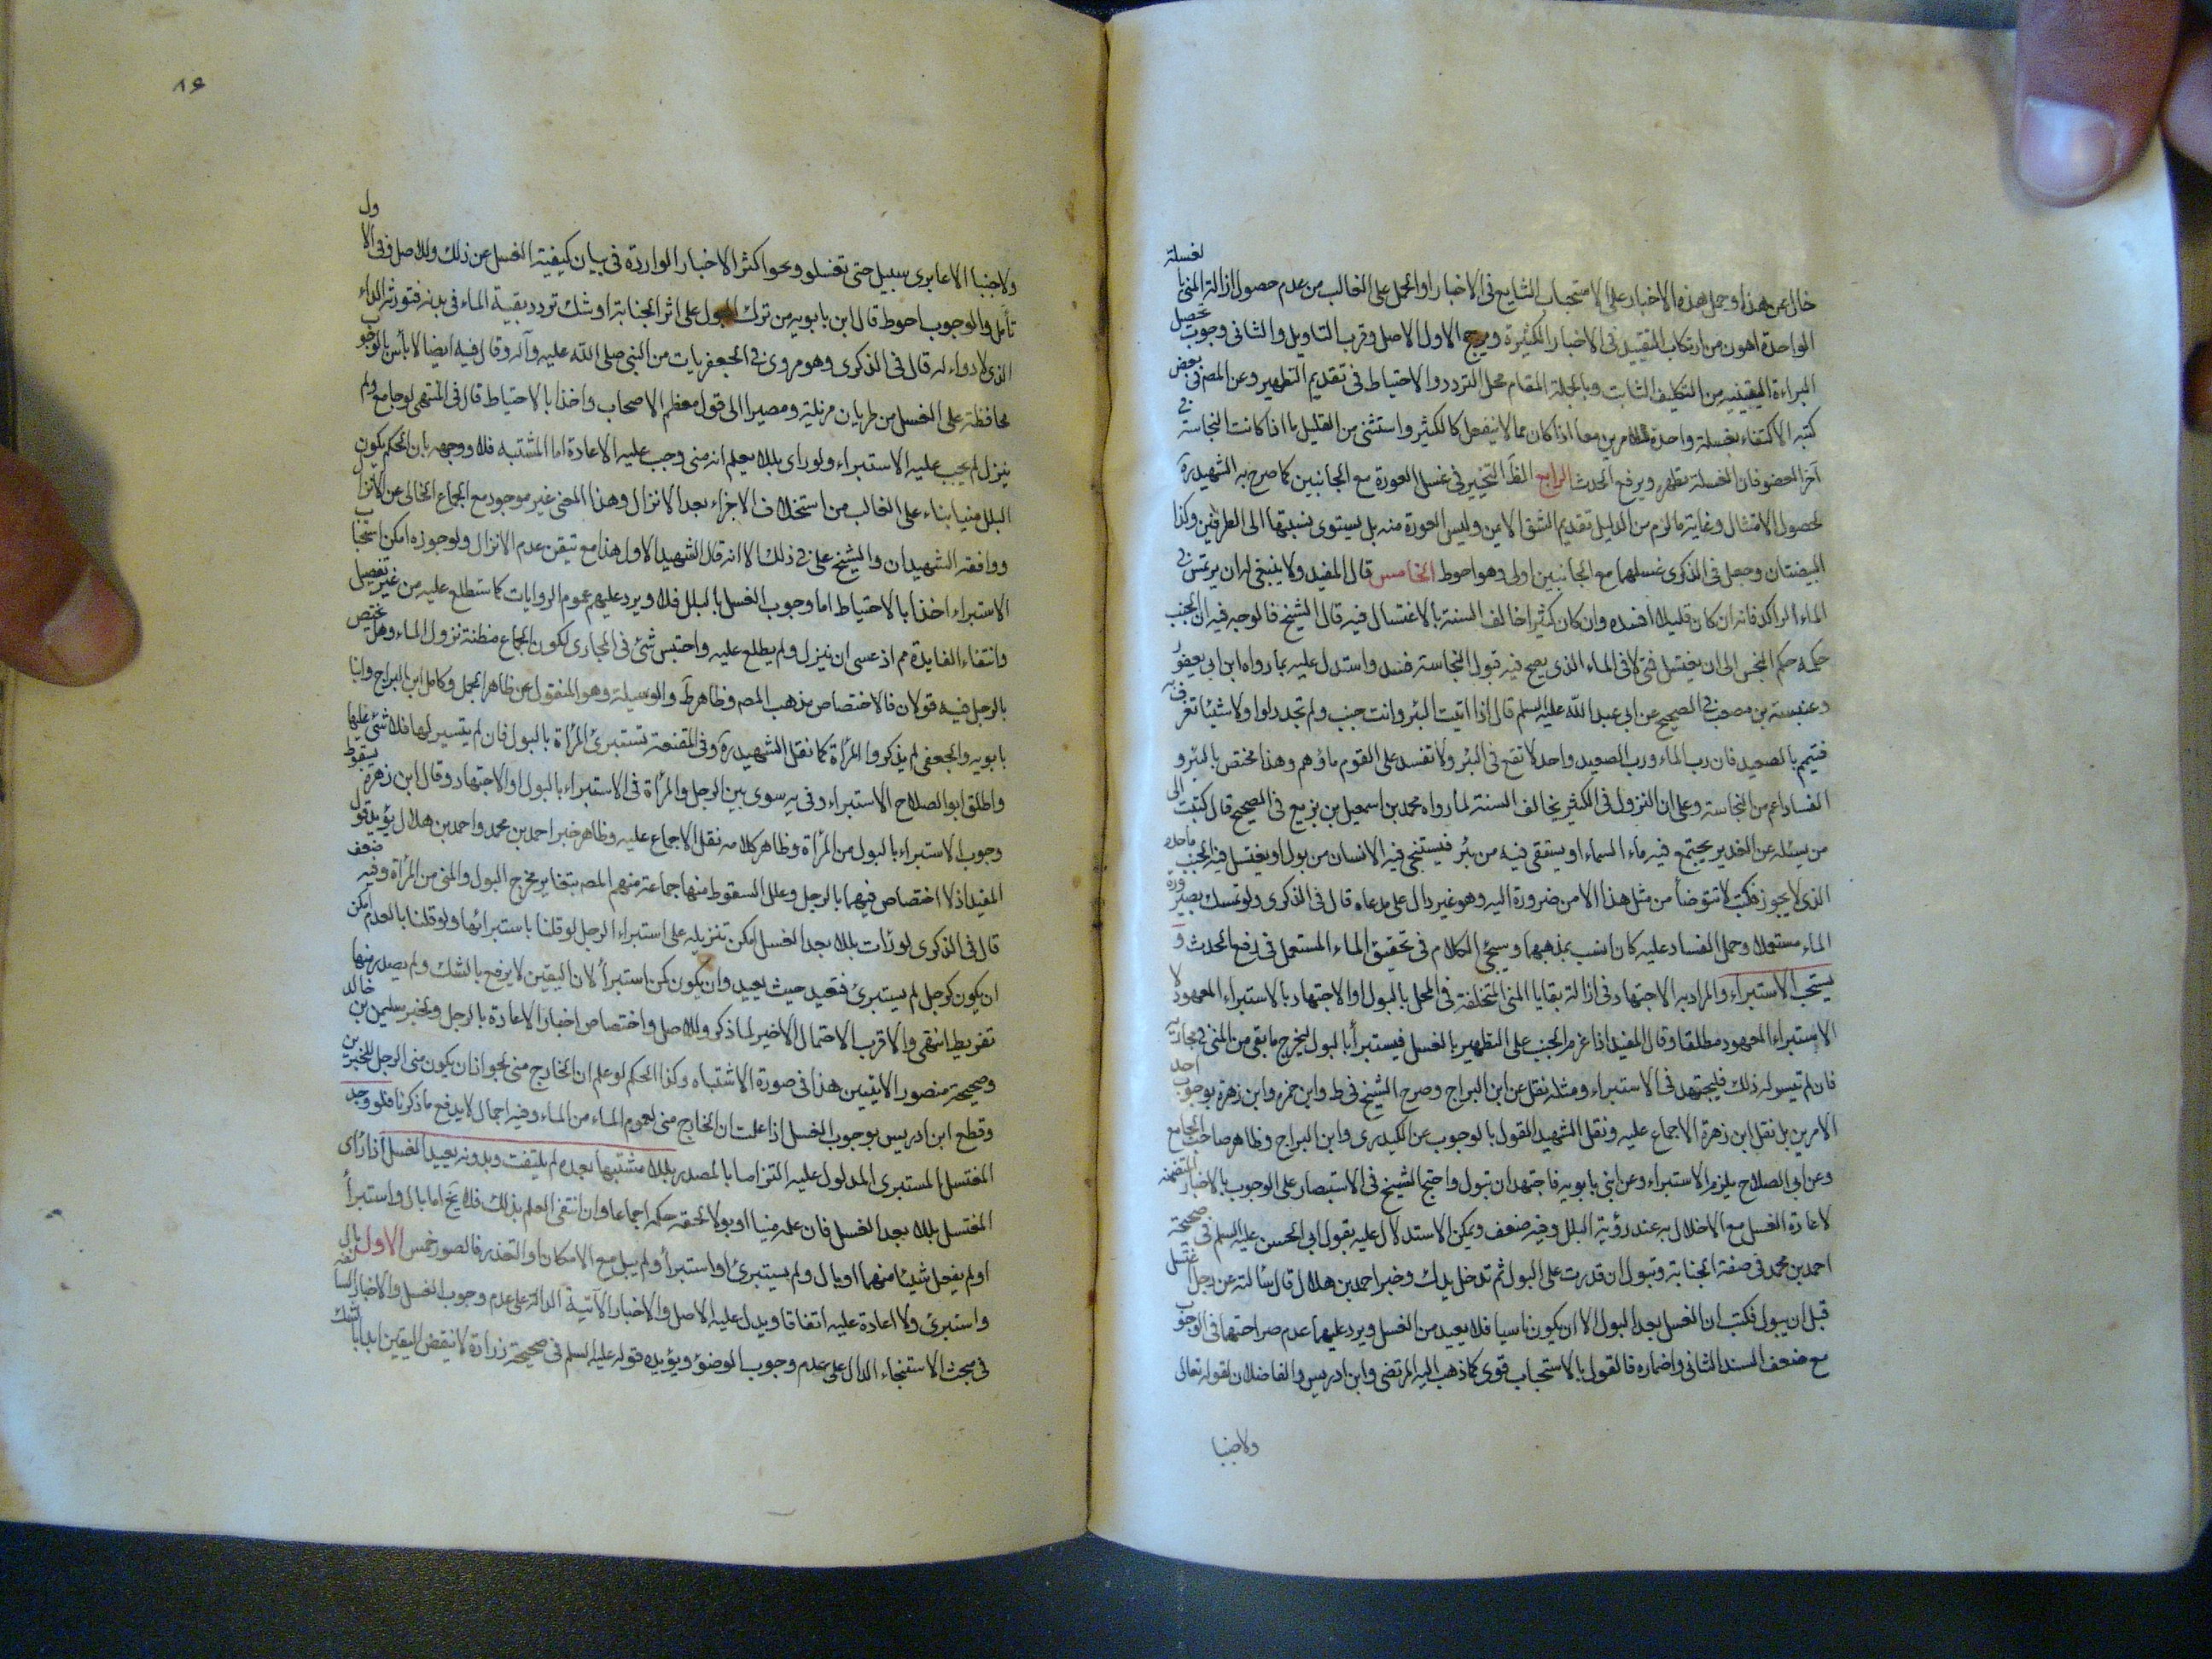 خال عن هذا وحمل هذه الاخبار على الاستحباب الشايع فى الاخبار او الحمل على الغالب من عدم حصول ازالة المنى بالغسلة
الواحدة اهون من ارتكاب التقييد فى الاخبار الكثيرة ويرجح الاول الاصل وقرب التاويل والثانى وجوب تحصيل
البراءة اليقينية من التكليف الثابت وبالجملة المقام محل التردد والاحتياط فى تقديم التطهير وعن المص فى بعض
كتبه الاكتفاء بغسلة واحدة للامرين معا اذا كان مما لا ينفعل كالكثير واستثنى من القليل ما اذا كانت النجاسة فى
آخر العضو فان الغسلة تطهره ويرفع الحدث الرابع الظ التخيير فى غسل العورة مع الجانبين كما صرح به الشهيد ره
لحصول الامتثال وغاية ما لزم من الدليل تقديم الشق الايمن وليس العورة منه بل يستوى نسبتها الى الطرفين وكذا
البيضتان وجعل فى الذكرى غسلهما مع الجانبين اولى وهو احوط الخامس قال المفيد ولا ينبغى له ان يرتمس فى
الماء الراكد فانه ان كان قليلا افسده وان كان كثيرا خالف السنة بالاغتسال فيه قال الشيخ فالوجه فيه ان الجنب
حكمه حكم النجس الى ان يغتسل فمتى لاقى الماء الذى يصح فيه قبول النجاسة فسد واستدل عليه بما رواه ابن ابى يعفور
وعنبسة بن مصعب فى الصحيح عن ابى عبد الله عليه السلم قال اذا اتيت البئر وانت جنب ولم تجد دلوا ولا شيئا تغرف به
فتيمم بالصعيد فان رب الماء ورب الصعيد واحد لا تقع فى البئر ولا تفسد على القوم ماؤهم وهذا مختص بالبئر و
الفساد اعم من النجاسة وعلى ان النزول فى الكثير يخالف السنة لما رواه محمد بن اسمعيل بن بزيع فى الصحيح قال كتبت الى
من يسئله عن الغدير يجتمع فيه ماء السماء او يستقى فيه من بئر فيستنجى فيه الانسان من بول او يغتسل فيه الجنب ما حده
الذى لا يجوز فكتب لا تتوضأ من مثل هذا الا من ضرورة اليه وهو غير دال على مدعاه قال فى الذكرى ولو تمسك بصيرورة
الماء مستعملا وحمل الفساد عليه كان انسب بمذهبهما وسيجئ الكلام فى تحقيق الماء المستعمل فى رفع الحدث و
يستحب الاستبراء والمراد به الاجتهاد فى ازالة بقايا المنى المتخلفة فى المحل بالبول او الاجتهاد بالاستبراء المعهود لا
الاستبراء المعهود مطلقا وقال المفيد اذا عزم الجنب على التطهير بالغسل فيستبرأ بالبول ليخرج ما بقى من المنى فى مجاريه
فان لم تيسر له ذلك فليجتهد فى الاستبراء ومثله نقل عن ابن البراج وصرح الشيخ فى ط وابن حمزه وابن زهرة بوجوب احد
الامرين بل نقل ابن زهرة الاجماع عليه ونقل الشهيد القول بالوجوب عن الكيدرى وابن البراج وظاهر صاحب الجامع
وعن ابى الصلاح يلزم الاستبراء وعن ابنى بابويه فاجتهد ان تبول واحتج الشيخ فى الاستبصار على الوجوب بالاخبار المتضمنة
لاعادة الغسل مع الاخلال به عند رؤية البلل وفيه ضعف ويمكن الاستدلال عليه بقول ابى الحسن عليه السلم فى صحيحة
احمد بن محمد فى صفة الجنابة وتبول ان قدرت على البول ثم تدخل يدك وخبر احمد بن هلال قال سألته عن رجل اغتسل
قبل ان يبول فكتب ان الغسل بعد البول الا ان يكون ناسيا فلا يعيد من الغسل ويرد عليهما عدم صراحتها فى الوجوب
مع ضعف السند الثانى واضماره فالقول بالاستحباب قوى كما ذهب اليه المرتضى وابن ادريس والفاضلان لقوله تعالى
ولا جنبا
٨۶
ولا جنبا الا عابرى سبيل حتى تغتسلو ونحو اكثر الاخبار الواردة فى بيان كيفية الغسل عن ذلك وللاصل وفى الاول
تأمل والوجوب احوط قال ابن بابويه من ترك البول على اثر الجنابة اوشك تردد بقية الماء فى بدنه فتورثه الداء
الذى لا دواء له قال فى الذكرى وهو مروى فى الجعفريات من النبى صلى الله عليه وآله وقال فيه ايضا لا بأس بالوجوب
محافظة على الغسل من طريان مزيله ومصيرا الى قول معظم الاصحاب واخذا بالاحتياط قال فى المنتهى لو جامع ولم
ينزل لم يجب عليه الاستبراء ولو راى بللا يعلم انه منى وجب عليه الاعادة اما المشتبه فلا ووجهه بان الحكم بكون
البلل منيا بناء على الغالب من استخلاف الاجزاء بعد الانزال وهذا المعنى غير موجود مع الجماع الخالى عن الانزال
ووافقه الشهيدان والشيخ على فى ذلك الا انه قال الشهيد الاول هذا مع تيقن عدم الانزال ولو جوزه امكن استحباب
الاستبراء اخذا بالاحتياط اما وجوب الغسل بالبلل فلا ويرد عليهم عموم الروايات كما ستطلع عليه من غير تفصيل
وانتفاء الفايدة مم اذ عسى ان ينزل ولم يطلع عليه واحتبس شئ فى المجارى لكون الجماع مظنة نزول الماء وهل يختص
بالرجل فيه قولان فالاختصاص مذهب المص وظاهر ط والوسيلة وهو المنقول عن ظاهر الجمل وكامل ابن البراج وابنا
بابويه والجعفى لم يذكروا المرأة كما نقل الشهيد ره وفى المقنعة تستبرئ المرأة بالبول فان لم يتيسر لها فلا شئ عليها
واطلق ابو الصلاح الاستبراء وفى يه سوى بين الرجل والمرأة فى الاستبراء بالبول او الاجتهاد وقال ابن زهره بسقوط
وجوب الاستبراء بالبول من المرأة وظاهر كلامه نقل الاجماع عليه وظاهر خبر احمد بن محمد واحمد بن هلال يؤيد قول
المفيد اذ لا اختصاص فيهما بالرجل وعلل السقوط منها جماعة منهم المص بتغاير مخرج البول والمنى من المرأة وفيه ضعف
قال فى الذكرى لو رات بللا بعد الغسل امكن تنزيله على استبراء الرجل لو قلنا باستبرائها ولو قلنا بالعدم امكن
ان يكون كرجل لم يستبرئ فتعيد حيث يعيد وان يكون كمن استبرأ لان اليقين لا يرفع بالشك ولم يصدر منها
تفريط انتهى والاقرب الاحتمال الاخير لما ذكر وللاصل واختصاص اخبار الاعادة بالرجل وبخبر سليمن بن خالد
وصحيحة منصور الاتيين هذا فى صورة الاشتباه وكذا الحكم لو علم ان الخارج منى لجواز ان يكون منى الرجل للخبرين
وقطع ابن ادريس بوجوب الغسل اذا علمت ان الخارج منى لعموم الماء من الماء وفيه اجمال لا يدفع ما ذكرنا فلو وجد
المغتسل المستبرى المدلول عليه التزاما بالمصدر بللا مشتبها بعده لم يلتفت وبدونه يعيد الغسل اذا رأى
المغتسل بللا بعد الغسل فان علمه منيا او بولا لحقه حكمه اجماعا وان انتفى العلم بذلك فلا يخ اما بال واستبرأ
او لم يفعل شيئا منهما او بال ولم يستبرئ او استبرأ ولم يبل مع الامكان او التعذر فالصور خمس الاول بال
واستبرئ ولا اعادة عليه اتفاقا ويدل عليه الاصل والاخبار الآتية الدالة على عدم وجوب الغسل والاخبار السالفة
فى مبحث الاستنجاء الدال على عدم وجوب الوضوء ويؤيده قوله عليه السلم فى صحيحة زرارة لا ينقض اليقين ابدا بالشك